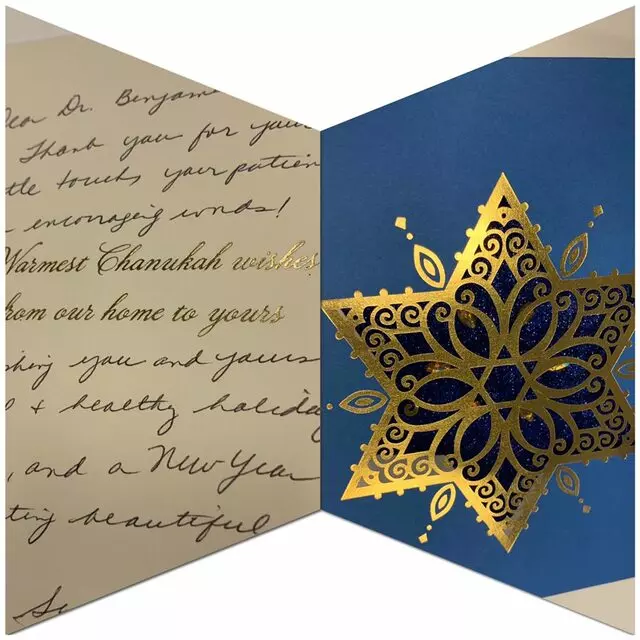 Dear Dr. Benjam
Thank you for your
tle touch, your patien
encouraging words!
Warmest Chanukah wishes
from our home to yours
shing you and yours
+ healthy holiday
, and a New Year
ting beautiful